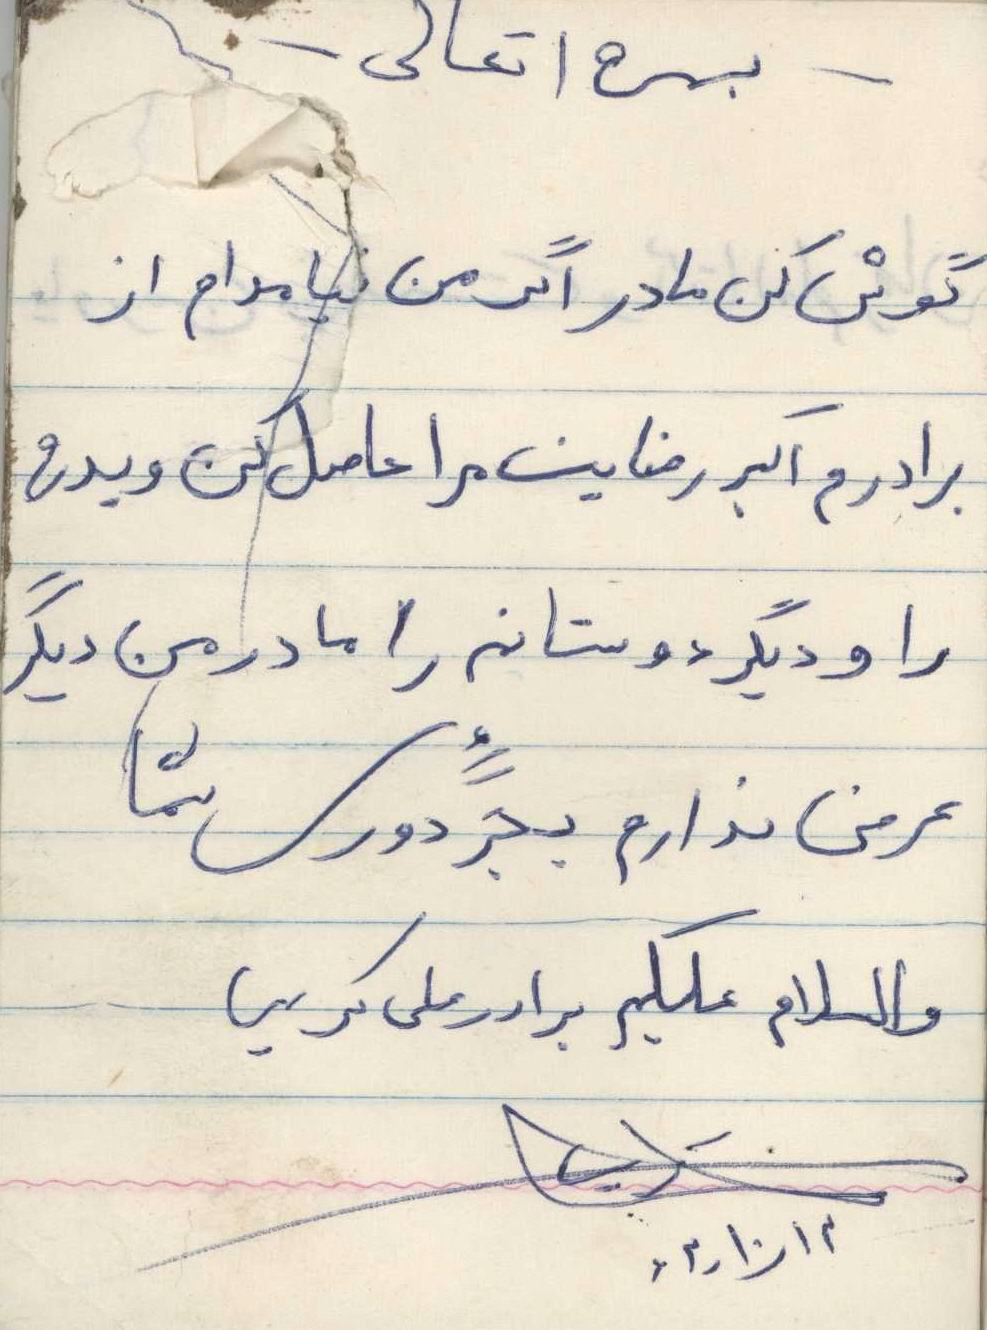 بسمه تعالی
گوش کن مادر اگر من نیامدم از
برادرم اکبر رضایت مرا حاصل کن و پدرم
را و دیگر دوستانم را مادر من دیگر
عرضی ندارم بجز دوری شما
والسلام علیکم برادر علی